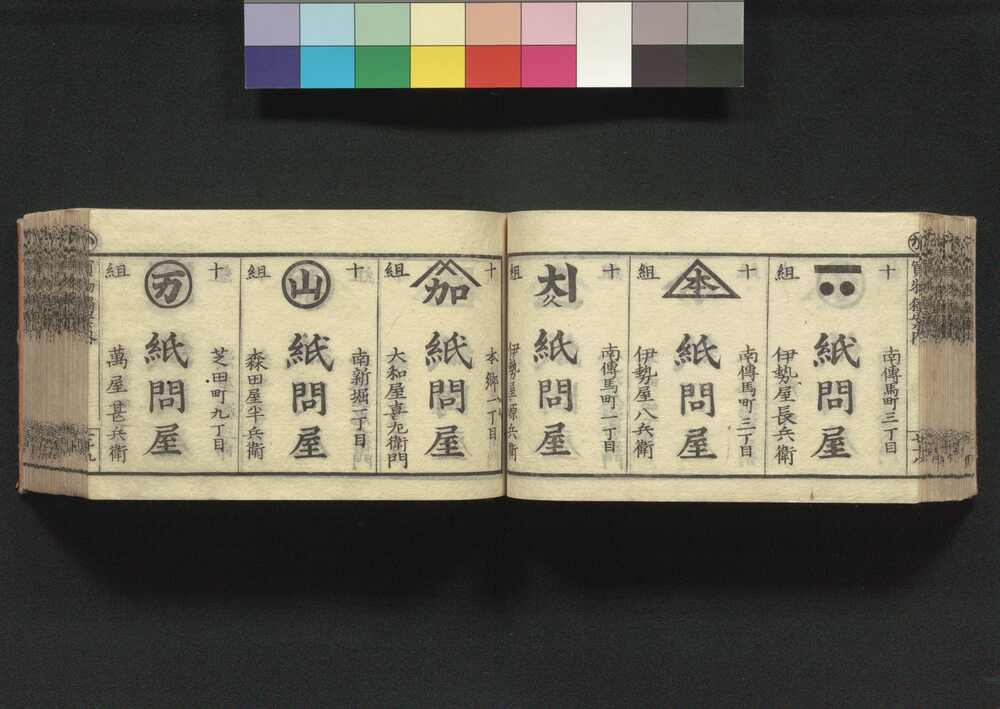 十
組
南傳馬町三丁目
紙問屋
伊勢屋長兵衛
十
組
本
南傳馬町三丁目
紙問屋
伊勢屋八兵衛
十
組
南傳馬町一丁目
紙問屋
伊勢屋源兵衛
十
組
加
本郷一丁目
紙問屋
大和屋喜左衛門
十
組
山
南新堀一丁目
紙問屋
森田屋半兵衛
十
組
万
芝田町九丁目
紙問屋
萬屋甚兵衛